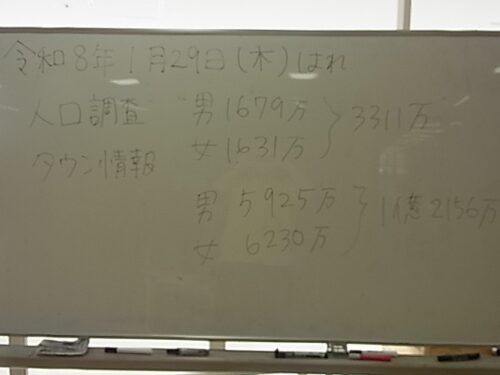 令和8年1月29日(木)はれ
人口調査 男1679万
女1631万 } 3311万
タウン情報
男 5925万
女 6230万 } 1億2156万